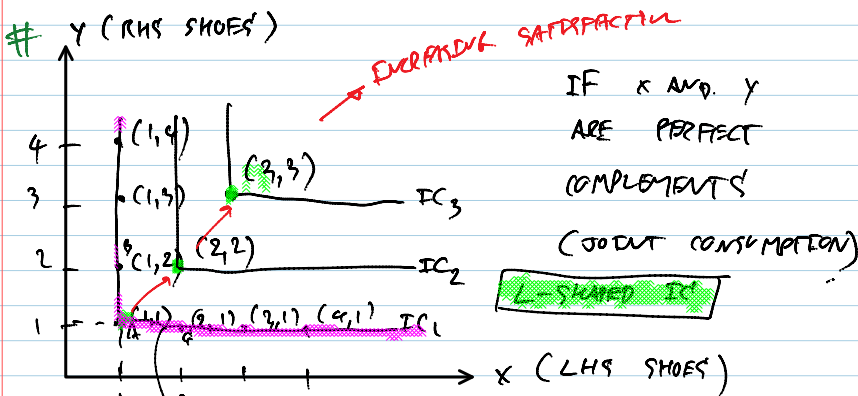 # Y (RHS SHOES)
INCREASING SATISFACTION
IF X AND. Y
ARE PERFECT
COMPLEMENTS
(JOINT CONSUMPTION)
L-SHAPED IC
4 (1,4)
(3,3)
3 (1,3) IC3
2 B (1,2) (2,2) IC2
1 A (1,1) (2,1) (3,1) (4,1) IC1
X (LHS SHOES)